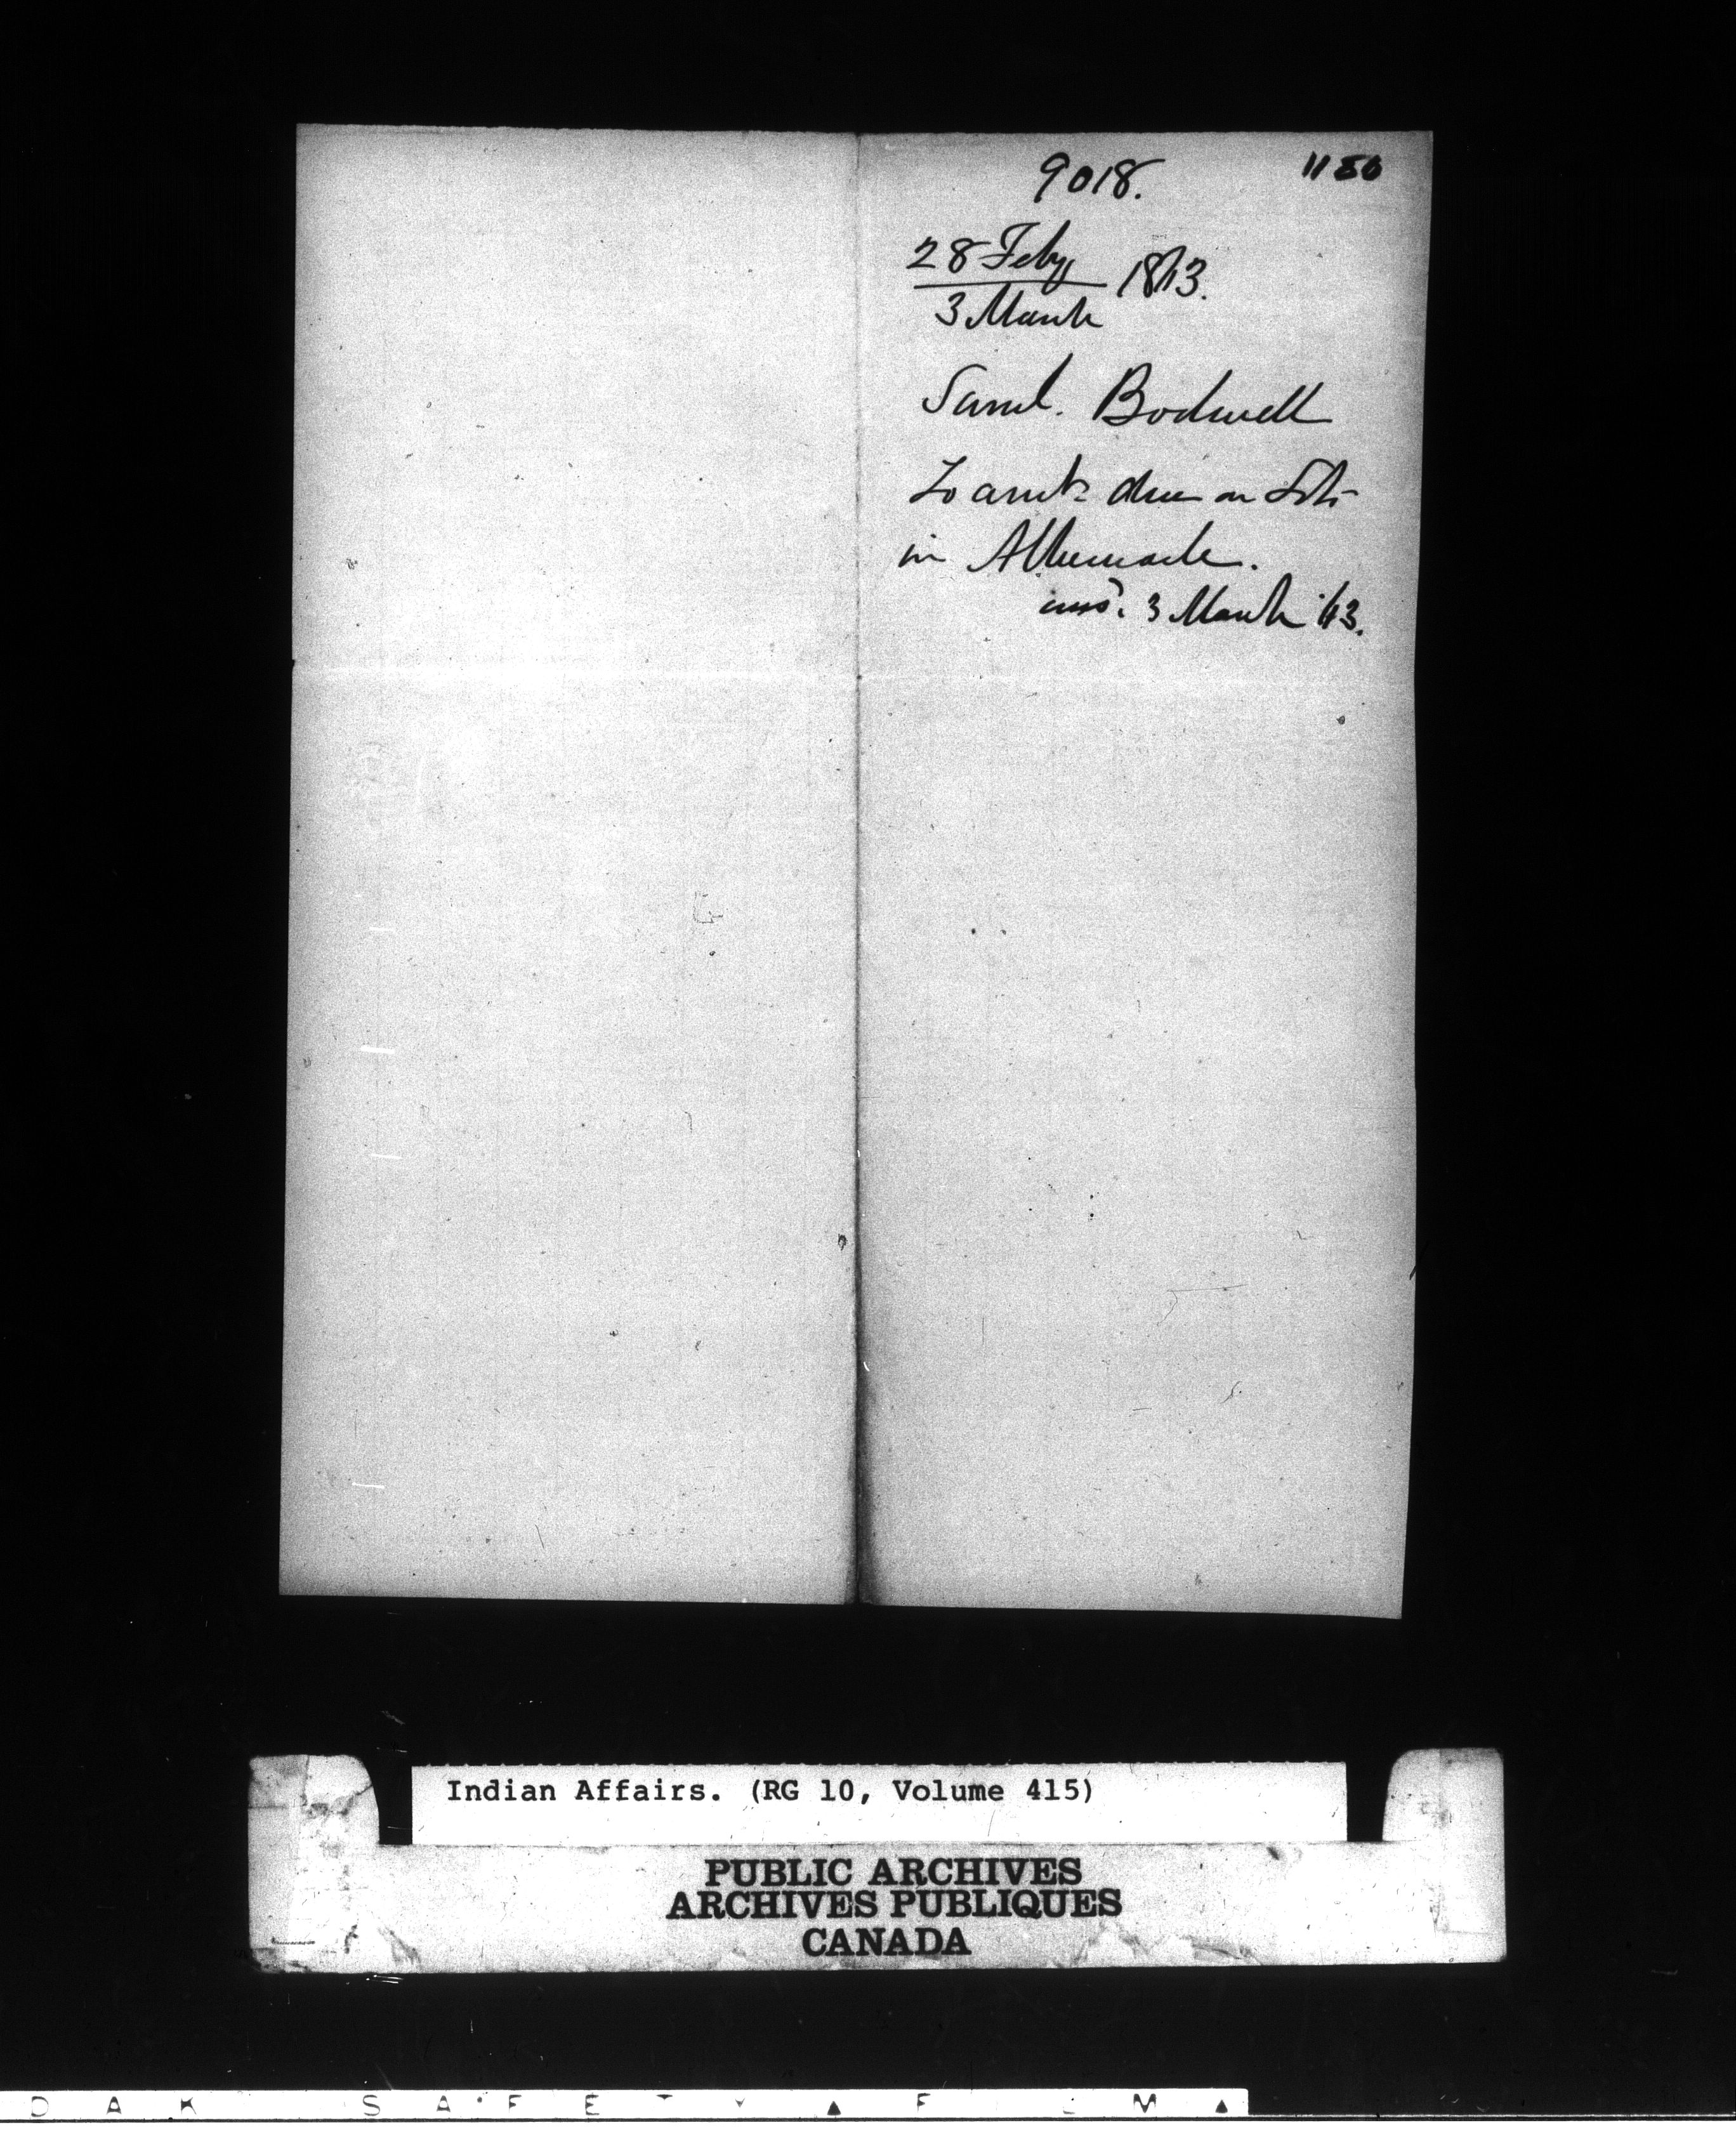 9018.
1180
28 Feby
3 March
1873.
Saml. Bodwell
To amts due on Lots
in Albemarle.
ans. 3 March '73.
Indian Affairs. (RG 10, Volume 415)
PUBLIC ARCHIVES
ARCHIVES PUBLIQUES
CANADA
D A K S A F E T Y F L M